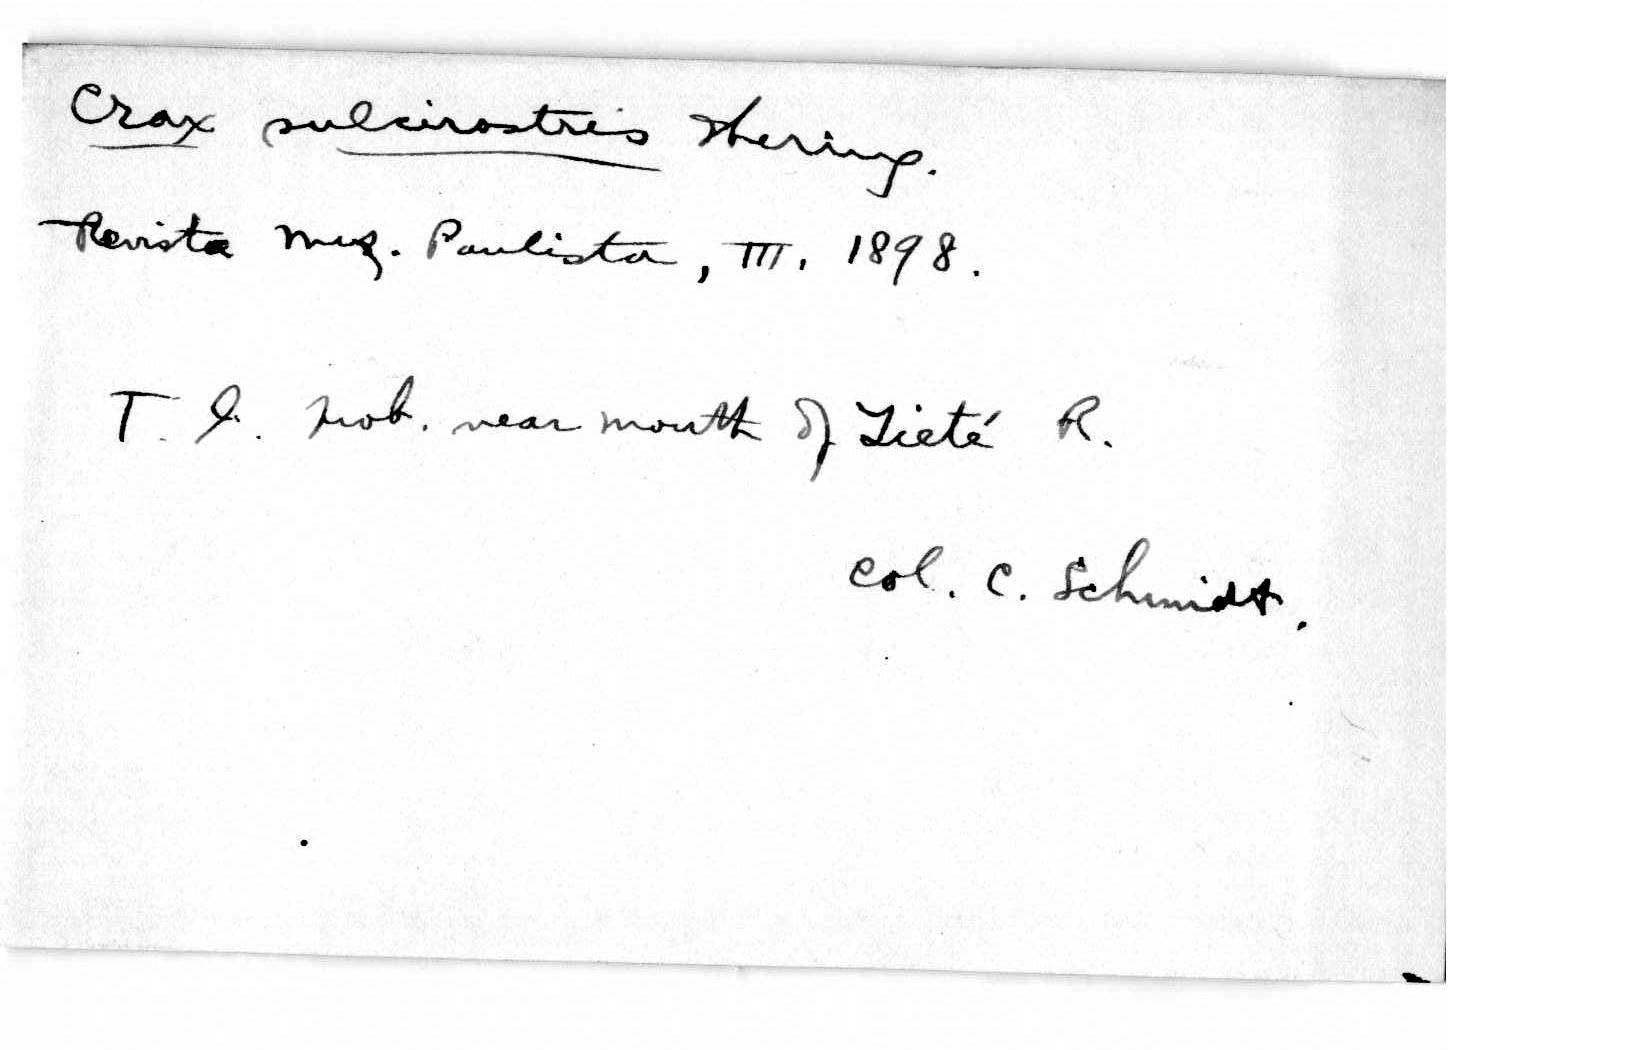 Crax sulcirostris Ihering.
Revista Mus. Paulista, III. 1898.
T. l. prob. near mouth of Tieté R.
Col. C. Schmidt.